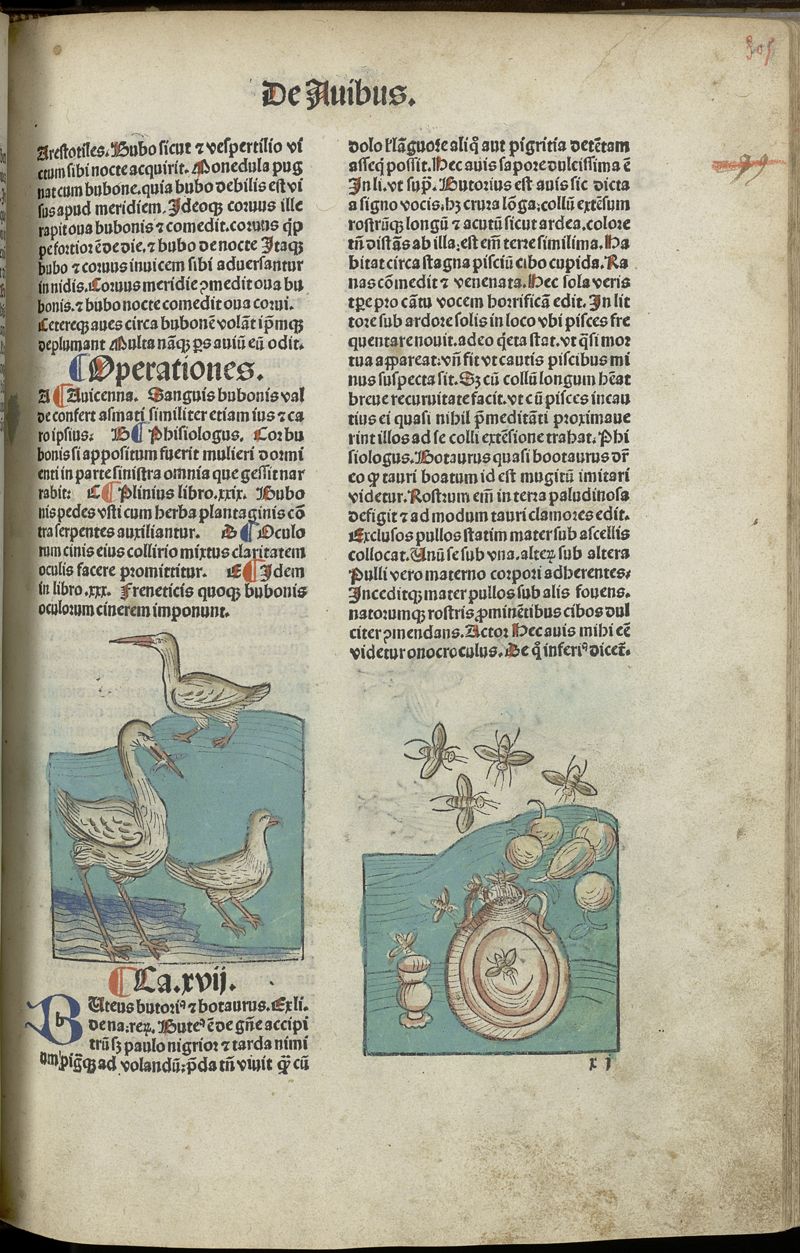 De Auibus.
305
99
Arestotiles. Bubo sicut ⁊ vespertilio vi
ctum sibi nocte acquirit. Monedula pug
nat cum bubone. quia bubo debilis est vi
sus apud meridiem. Ideoqꝫ coruus ille
rapit oua bubonis ⁊ comedit. coruus qͥp
pe fortior ē de die. ⁊ bubo de nocte Itaqꝫ
bubo ⁊ coruus inuicem sibi aduersantur
in nidis. Coruus meridie ꝯmedit oua bu
bonis. ⁊ bubo nocte comedit oua corui.
Cetereqꝫ aues circa bubonē volāt ip̄mqꝫ
deplumant Multa nāqꝫ ꝑs auiū eū odit.
¶ Operationes.
A ¶ Auicenna. Sanguis bubonis val
de confert asmati similiter etiam ius ⁊ ca
ro ipsius. B ¶ Phisiologus. Cor bu
bonis si appositum fuerit mulieri dormi
enti in parte sinistra omnia que gessit nar
rabit: C ¶ Plinius libro.xxix. Bubo
nis pedes vsti cum herba plantaginis cō
tra serpentes auxiliantur. D ¶ Oculo
rum cinis eius collirio mixtus claritatem
oculis facere promittitur. E ¶ Idem
in libro.xxx. Freneticis quoqꝫ bubonis
oculorum cinerem imponunt.
¶ Ca.xvij.
BUteus butoriꝰ ⁊ botaurus. Ex li.
de na. reꝝ. Buteꝰ ē de gn̄e accipi
trū sꝫ paulo nigrior ⁊ tarda nimi
um pigraqꝫ ad volandū: p̄da tn̄ viuit qͣꝫ cū
dolo ł lāguore aliqͣ aut pigritia detētam
asseqͥ possit. Hec auis sapore dulcissima ē
In li. vt supͣ. Butorius est auis sic dicta
a signo vocis. hꝫ crura lōga: collū extēsum
rostrūqꝫ longū ⁊ acutū sicut ardea. colore
tn̄ distās ab illa: est em̄ terre similima. Ha
bitat circa stagna pisciū cibo cupida. Ra
nas cōmedit ⁊ venenata. Hec sola veris
tꝑe pro cātu vocem horrificā edit. In lit
tore sub ardore solis in loco vbi pisces fre
quentare nouit. adeo qͥeta stat. vt qͣsi mor
tua appareat: vn̄ fit vt cautis piscibus mi
nus suspecta sit. Sꝫ cū collū longum hēat
breue recuruitate facit. vt cū pisces incau
tius ei quasi nihil p̄meditāti proxima ue
rint illos ad se colli extēsione trahat. Phi
siologus. Botaurus quasi bootaurus dr̄
eo ꝙ tauri boatum id est mugitū imitari
videtur. Rostrum em̄ in terra paludinosa
defigit ⁊ ad modum tauri clamores edit.
Exclusos pullos statim mater sub ascellis
collocat. Unū se sub vna. alteꝝ sub altera
Pulli vero materno corpori adherentes.
Inceditqꝫ mater pullos sub alis fouens.
natorumqꝫ rostris ꝓminētibus cibos dul
citer ꝯmendans. Actor Hec auis mihi eē
videtur onocroculus. De qͦ inferiꝰ dicet̄.
x j